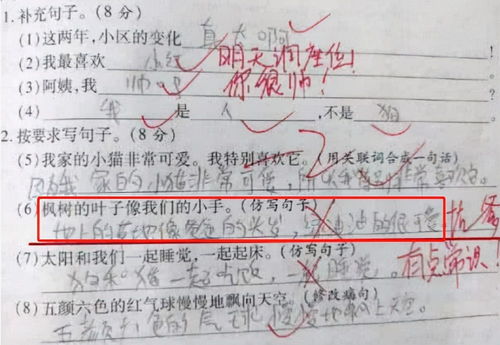 1.补充句子。(8分)
(1)这两年,小区的变化 真大啊
(2)我最喜欢 小红 明天调座位!
(3)阿姨,我 帅 你很帅!
(4) 我 是 人 ,不是 狗
2.按要求写句子。(8分)
(5)我家的小猫非常可爱。我特别喜欢它。(用关联词合成一句话)
因为我家的小猫非常可爱,所以我非常喜欢
(6)枫树的叶子像我们的小手。(仿写句子)
地上的草地像爸爸的头发,
(7)太阳和我们一起睡觉,一起起床。(仿写句子) 有点常识!
一起 睡觉。
(8)五颜六色的红气球慢慢地飘向天空。(修改病句)
五颜六色的气球慢慢地飘上天空。